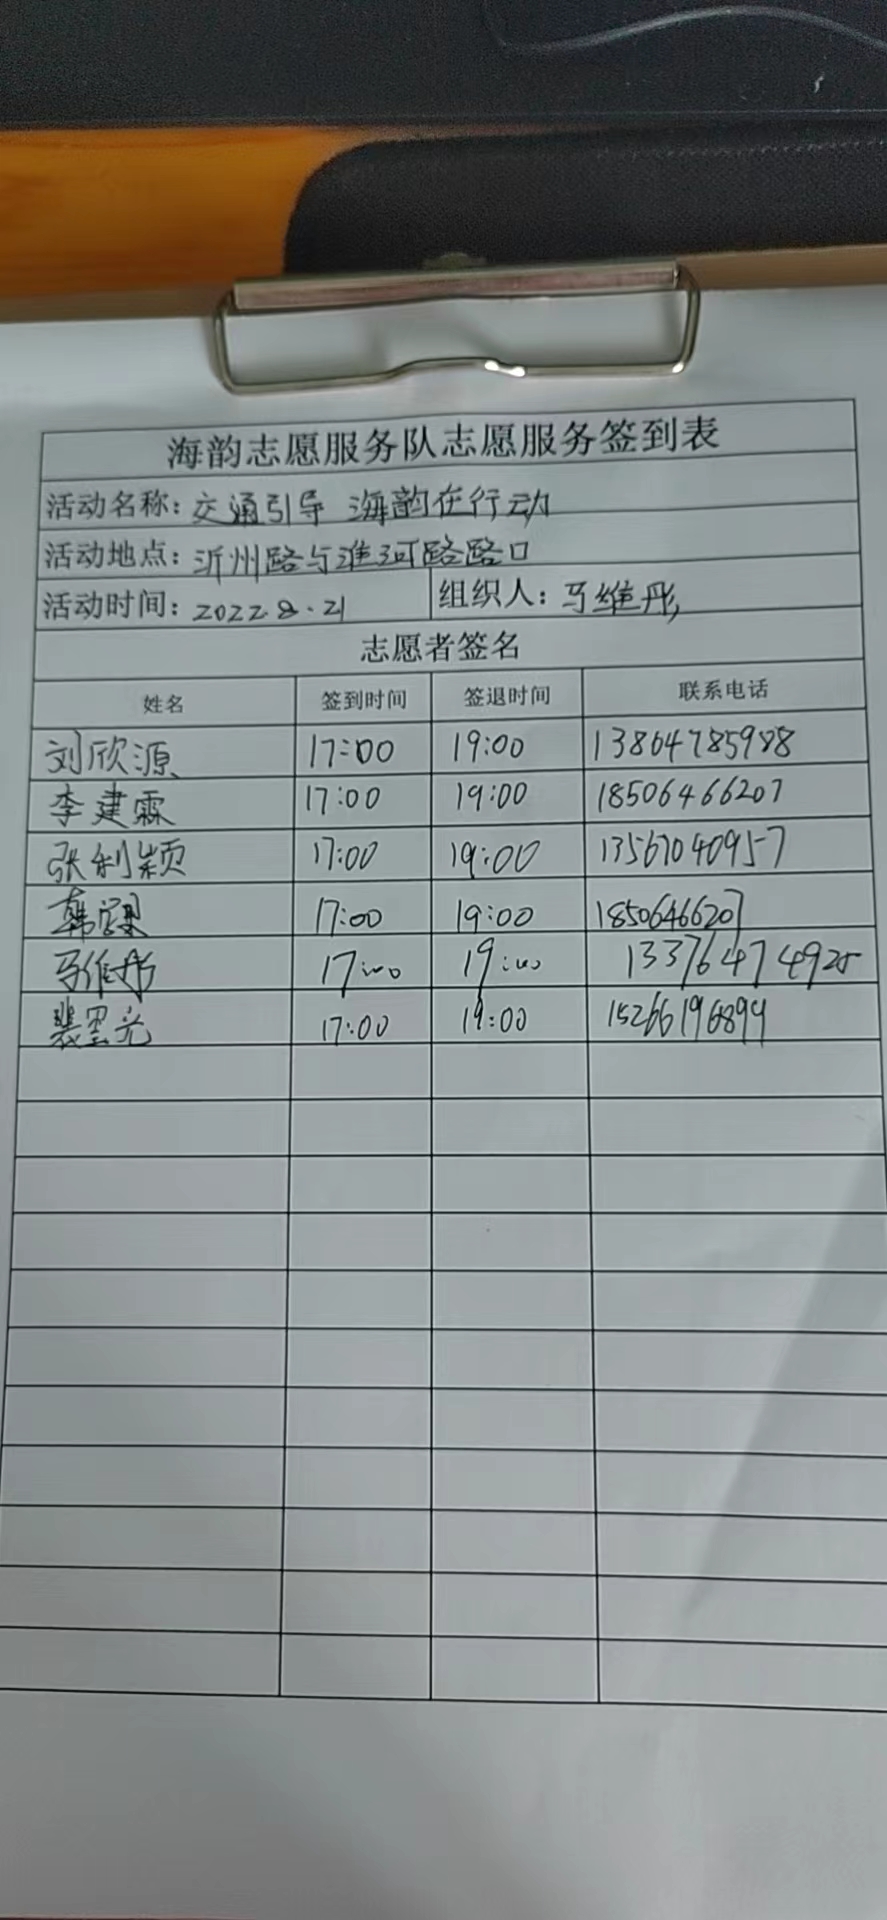 海韵志愿服务队志愿服务签到表
活动名称：交通引导 海韵在行动
活动地点：沂州路与淮河路路口
活动时间：2022.8.21 组织人：马维彤
志愿者签名
姓名 签到时间 签退时间 联系电话
刘欣源 17:00 19:00 13864785988
李建霖 17:00 19:00 18506466207
张利颖 17:00 19:00 13567040957
韩 17:00 19:00 18506466207
马维彤 17:00 19:00 13376474925
裴罡光 17:00 19:00 15266196894